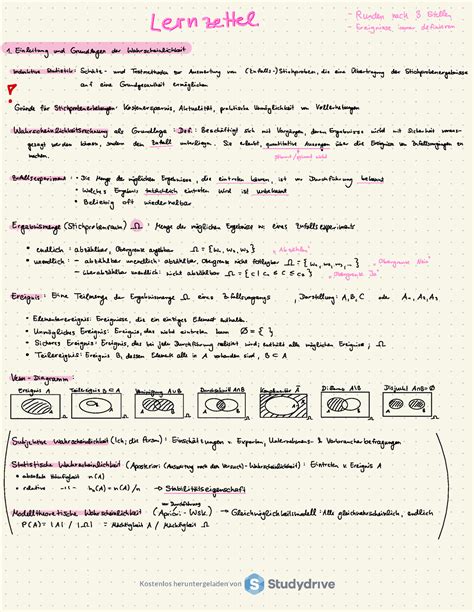 Lernzettel
- Runden nach 3 Stellen
- Ereignisse immer definieren
1. Einleitung und Grundlagen der Wahrscheinlichkeit
Induktive Statistik: Schätz- und Testmethoden zur Auswertung von (Zufalls-)Stichproben, die eine Übertragung der Stichprobenergebnisse
auf eine Grundgesamtheit ermöglichen
Gründe für Stichprobenerhebungen: Kostenersparnis, Aktualität, praktische Unmöglichkeit von Vollerhebungen
Wahrscheinlichkeitsrechnung als Grundlage: Def.: Beschäftigt sich mit Vorgängen, deren Ergebnisse nicht mit Sicherheit voraus-
gesagt werden können, sondern dem Zufall unterliegen. Sie erlaubt, quantitative Aussagen über die Ereignisse von Zufallsvorgängen zu
machen.
Zufallsexperiment: • Die Menge der möglichen Ergebnisse, die eintreten können, ist vor Durchführung bekannt
• Welches Ergebnis tatsächlich eintreten wird ist unbekannt
• Beliebig oft wiederholbar
Ergebnismenge (Stichprobenraum) Ω: Menge der möglichen Ergebnisse ω eines Zufallsexperiments
• endlich: abzählbar, Obergrenze angebbar Ω = {ω₁, ω₂, ω₃} "Abzählen"
• unendlich: - abzählbar unendlich: abzählbar, Obergrenze nicht festlegbar Ω = {ω₁, ω₂, ω₃, ...} "Obergrenze Nein"
- überabzählbar unendlich: nicht abzählbar Ω = {c | c₀ ≤ c ≤ c₀} "Obergrenze Ja"
Ereignis: Eine Teilmenge der Ergebnismenge Ω eines Zufallsvorgangs, Darstellung: A, B, C oder A₁, A₂, A₃
• Elementarereignis: Ereignisse, die ein einziges Element enthalten.
• Unmögliches Ereignis: Ereignis, das nicht eintreten kann Ø = { }
• Sicheres Ereignis: Ereignis, das bei jeder Durchführung realisiert wird; enthält alle möglichen Ereignisse; Ω
• Teilereignis: Ereignis B, dessen Elemente alle in A vorhanden sind, B ⊂ A
Venn-Diagramm:
Ereignis A Teilereignis B ⊂ A Vereinigung A∪B Durchschnitt A∩B Komplementär Ā Differenz A\B Disjunkt A∩B=Ø
A B A A B A B A A B A B
Ω Ω Ω Ω Ω Ω Ω
Subjektive Wahrscheinlichkeit (Ich; die Person): Einschätzungen v. Experten, Unternehmens- & Verbraucherbefragungen
Statistische Wahrscheinlichkeit (Aposteriori (Auswertung nach dem Versuch)-Wahrscheinlichkeit): Eintreten v. Ereignis A
• absolute Häufigkeit n(A)
• relative -"- hₙ(A) = n(A)/n → Stabilitätseigenschaft
vor Durchführung
Modelltheoretische Wahrscheinlichkeit (Apriori-Wsk.) → Gleichmöglichkeitsmodell: Alle gleichwahrscheinlich, endlich
P(A) = |A| / |Ω| = Mächtigkeit A / Mächtigkeit Ω
Kostenlos heruntergeladen von Studydrive